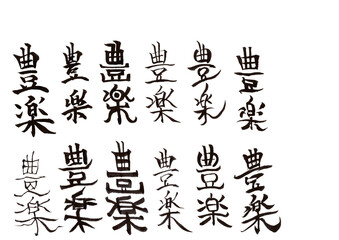 豊楽 豊楽 豊楽 豊楽 豊楽 豊楽
豊楽 豊楽 豊楽 豊楽 豊楽 豊楽